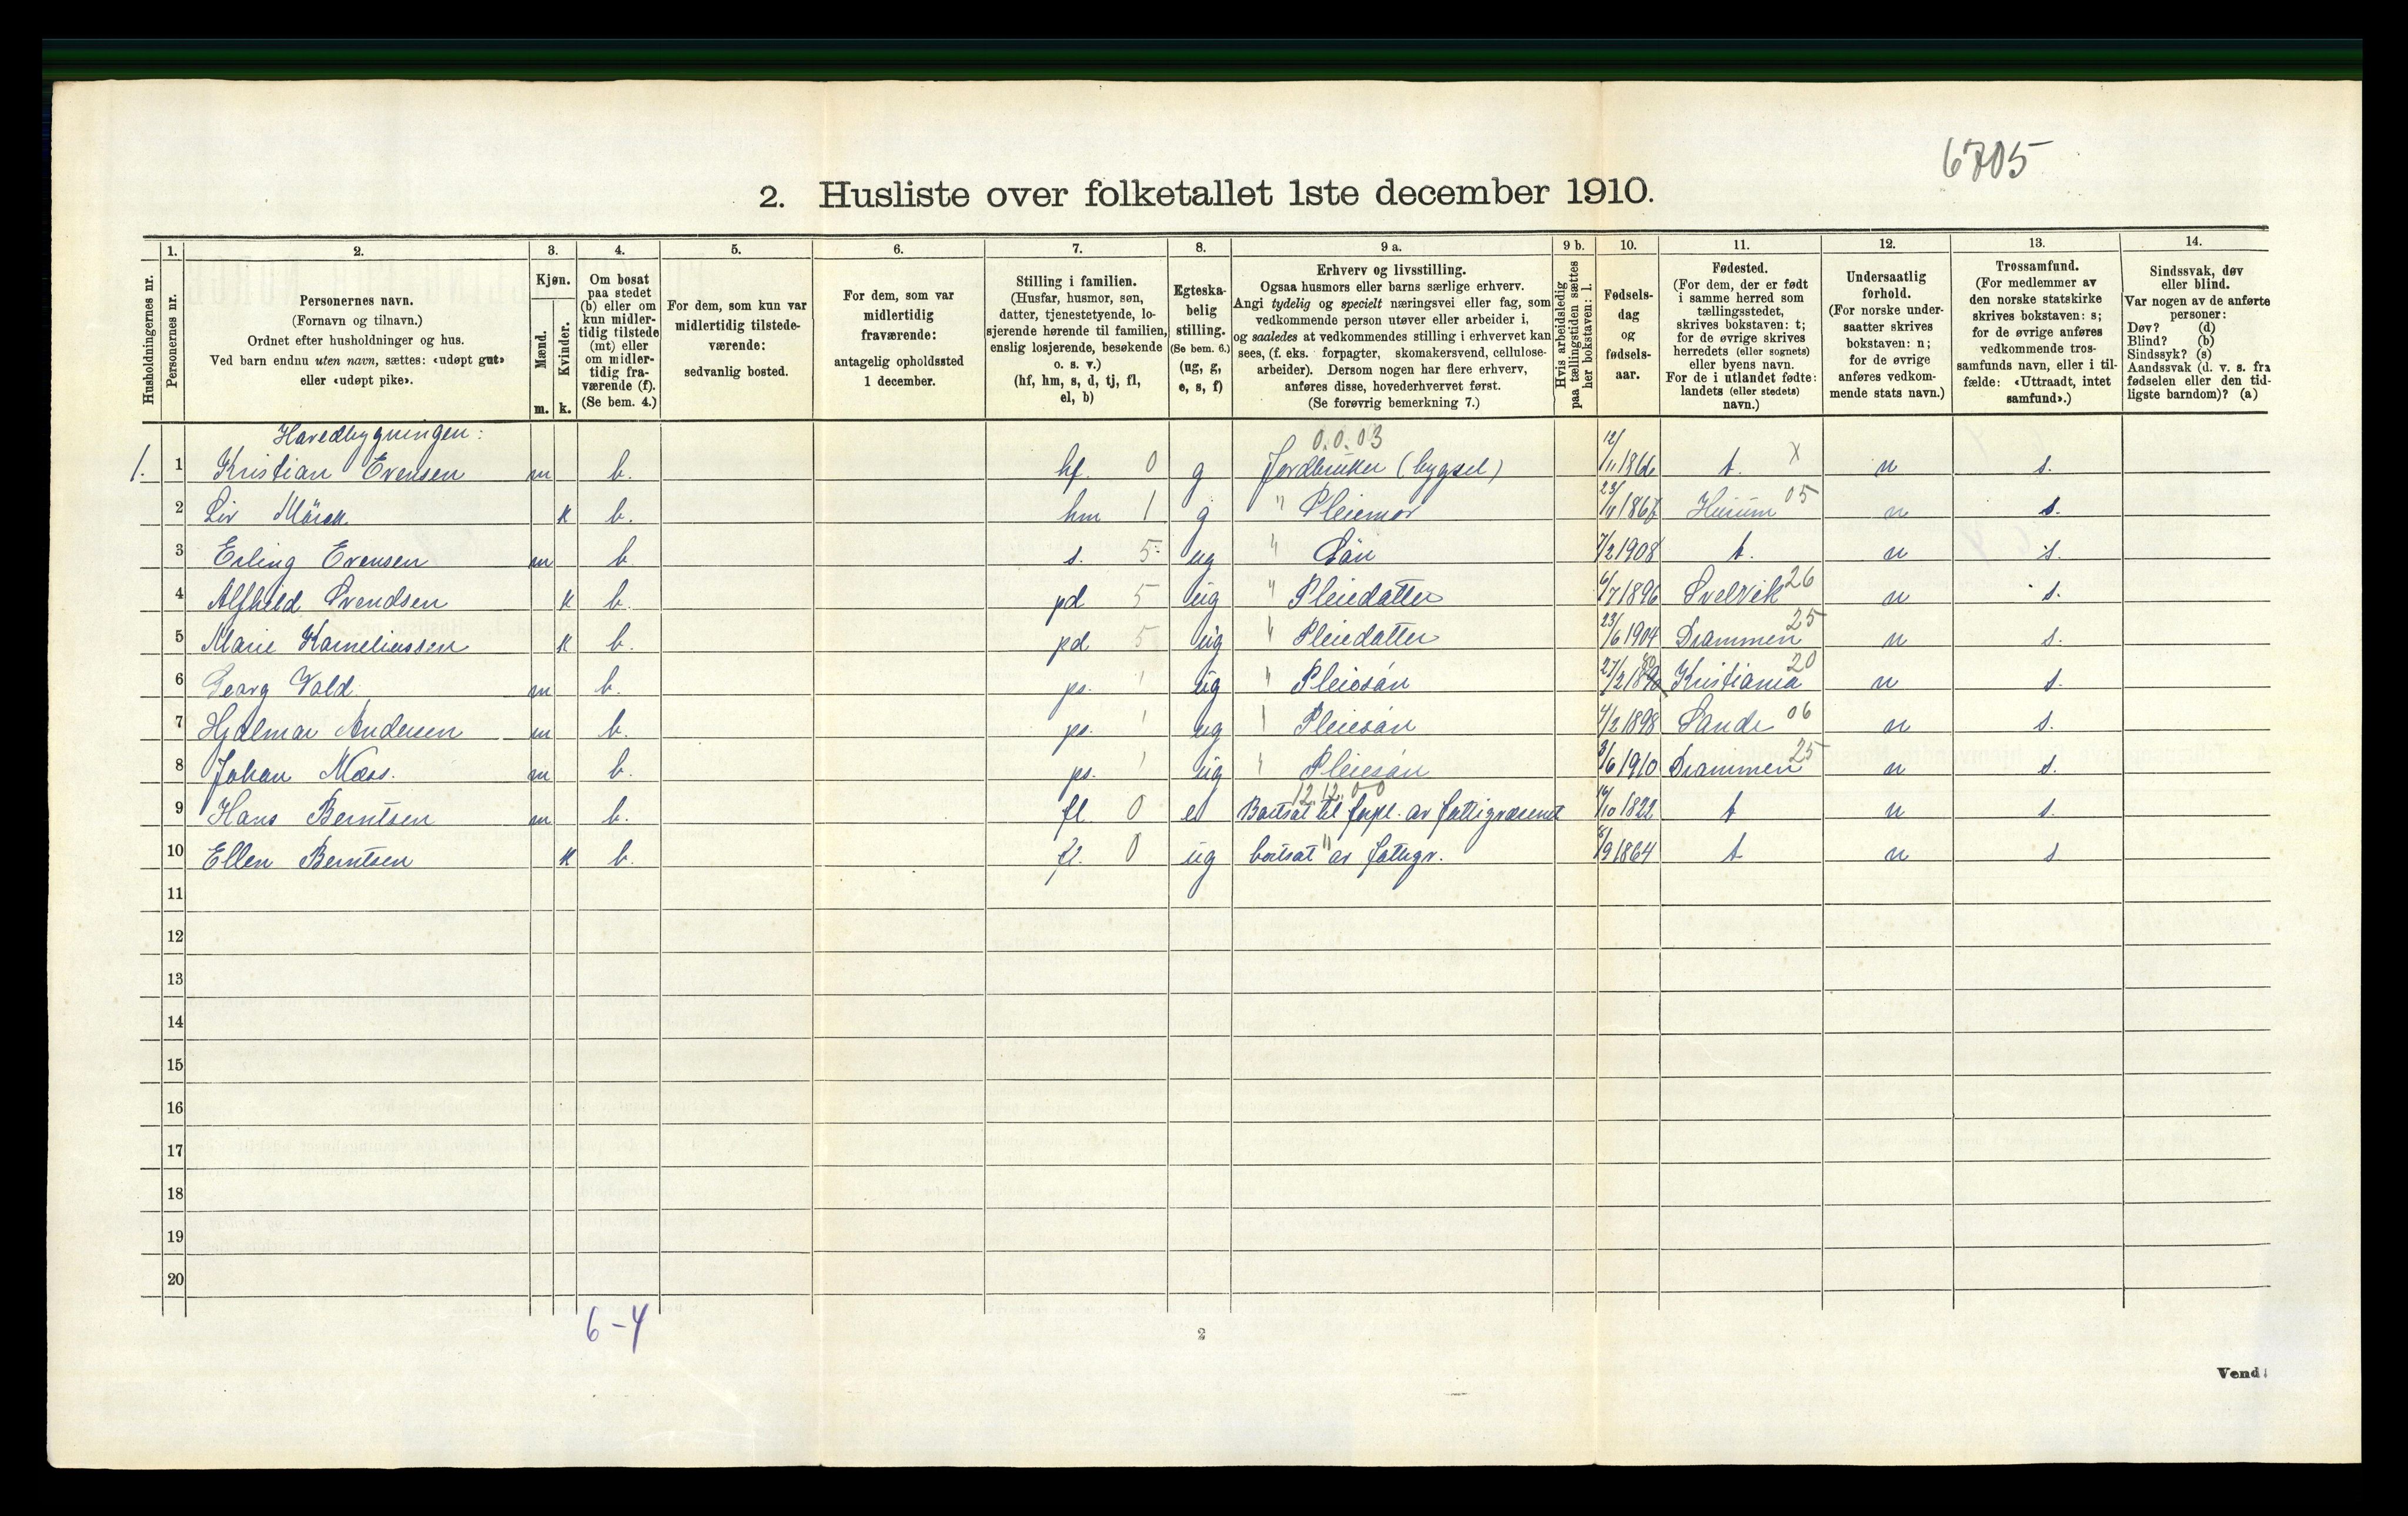 6705
2. Husliste over folketallet 1ste december 1910.
Husholdningernes nr.
1.
Personernes nr.
2.
Personernes navn.
(Fornavn og tilnavn.)
Ordnet efter husholdninger og hus.
Ved barn endnu uten navn, sættes: «udøpt gut»
eller «udøpt pike».
3.
Kjøn.
Mænd.
Kvinder.
m. k.
4.
Om bosat
paa stedet
(b) eller om
kun midler-
tidig tilstede
(mt) eller
om midler-
tidig fra-
værende (f).
(Se bem. 4.)
5.
For dem, som kun var
midlertidig tilstede-
værende:
sedvanlig bosted.
6.
For dem, som var
midlertidig
fraværende:
antagelig opholdssted
1 december.
7.
Stilling i familien.
(Husfar, husmor, søn,
datter, tjenestetyende, lo-
sjerende hørende til familien,
enslig losjerende, besøkende
o. s. v.)
(hf, hm, s, d, tj, fl,
el, b)
8.
Egteska-
belig
stilling.
(Se bem. 6.)
(ug, g,
e, s, f)
9 a.
Erhverv og livsstilling.
Ogsaa husmors eller barns særlige erhverv.
Angi tydelig og specielt næringsvei eller fag, som
vedkommende person utøver eller arbeider i,
og saaledes at vedkommendes stilling i erhvervet kan
sees, (f. eks. forpagter, skomakersvend, cellulose-
arbeider). Dersom nogen har flere erhverv,
anføres disse, hovederhvervet først.
(Se forøvrig bemerkning 7.)
9 b.
Hvis arbeidsledig
paa tællingstiden sættes
her bokstaven: l.
10.
Fødsels-
dag
og
fødsels-
aar.
11.
Fødested.
(For dem, der er født
i samme herred som
tællingsstedet,
skrives bokstaven: t;
for de øvrige skrives
herredets (eller sognets)
eller byens navn.
For de i utlandet fødte:
landets (eller stedets)
navn.)
12.
Undersaatlig
forhold.
(For norske under-
saatter skrives
bokstaven: n;
for de øvrige
anføres vedkom-
mende stats navn.)
13.
Trossamfund.
(For medlemmer av
den norske statskirke
skrives bokstaven: s;
for de øvrige anføres
vedkommende tros-
samfunds navn, eller i til-
fælde: «Uttraadt, intet
samfund».)
14.
Sindssvak, døv
eller blind.
Var nogen av de anførte
personer:
Døv? (d)
Blind? (b)
Sindssyk? (s)
Aandssvak (d. v. s. fra
fødselen eller den tid-
ligste barndom)? (a)
Hovedbygningen: 0.0.03
1. 1 Kristian Evensen m b. hf. 0 g Jordbruker (bygsel) 12/11 1866 t. x n s.
2 Liv Mörch k b. hm 1 g " Pleiemor 23/11 Hurum 05 n s.
3 Erling Evensen m b. s. 5 ug " Sön 7/2 1908 t. n s.
4 Alfhild Svendsen k b. pd 5 ug " Pleiedatter 6/7 1896 Svelvik 26 n s.
5 Marie Korneliussen k b. pd 5 ug " Pleiedatter 23/6 1904 Drammen 25 n s.
6 Georg Vold m b. ps. 1 ug " Pleiesön 27/2 Kristiania 20 n s.
7 Hjalmar Andersen m b. ps. 1 ug " Pleiesön 4/2 1898 Sande 06 n s.
8 Johan Næss. m b. ps. 1 ug " Pleiesön 3/6 1910 Drammen 25 n s.
12.12.00
9 Hans Berntsen m b. fl 0 e Bortsat til forpl. av fattigvæsenet 16/10 1822 t n s.
10 Ellen Berntsen k b. fl. 0 ug bortsat " av fattigv. 8/9 1864 t n s
11
12
13
14
15
16
17
18
19
20
6-4
2
Vend!